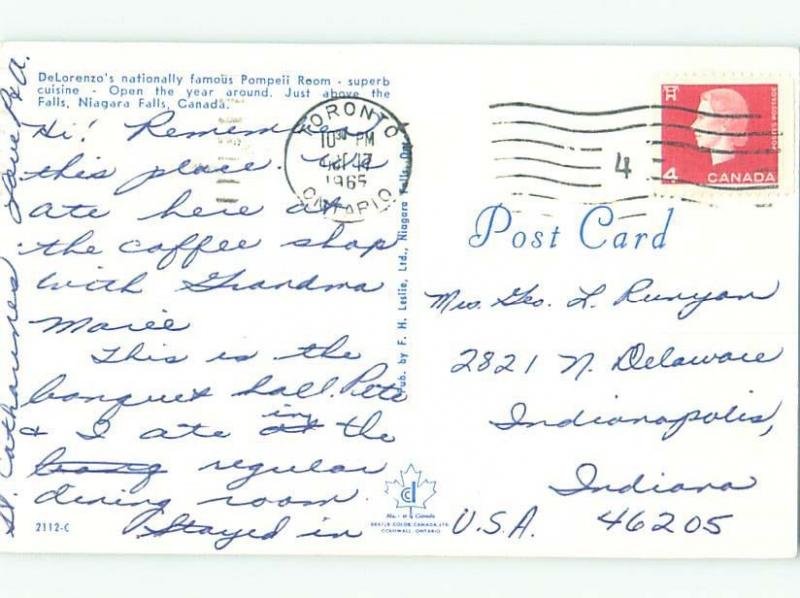 DeLorenzo's nationally famous Pompeii Room - superb
cuisine - Open the year around. Just above the
Falls, Niagara Falls, Canada.
Hi! Remember
this place. We
ate here at
the coffee shop
with Grandma
Marie
This is the
banquet hall. Pete
& I ate in the
regular
dining room.
Stayed in
St. Catharines
Love P & A.
2112-C
TORONTO
10 PM
1965
ONTARIO
4
POSTES POSTAGE
4 CANADA
Pub. by F. H. Leslie, Ltd., Niagara Falls, Ont.
Post Card
Mrs. Geo. L. Runyan
2821 N. Delaware
Indianapolis,
Indiana
U.S.A. 46205
CORNWALL, ONTARIO